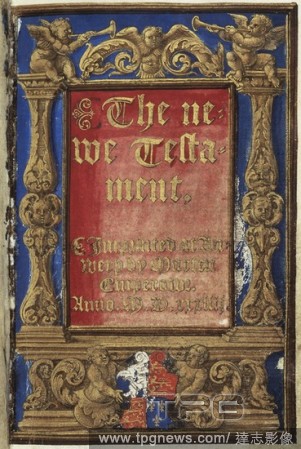 The ne=
we Testa=
ment.
Imprinted at Ant
werp by Marten
Emperowr.
Anno. M. D.
TPG
www.tpgnews.com/ 達志影像